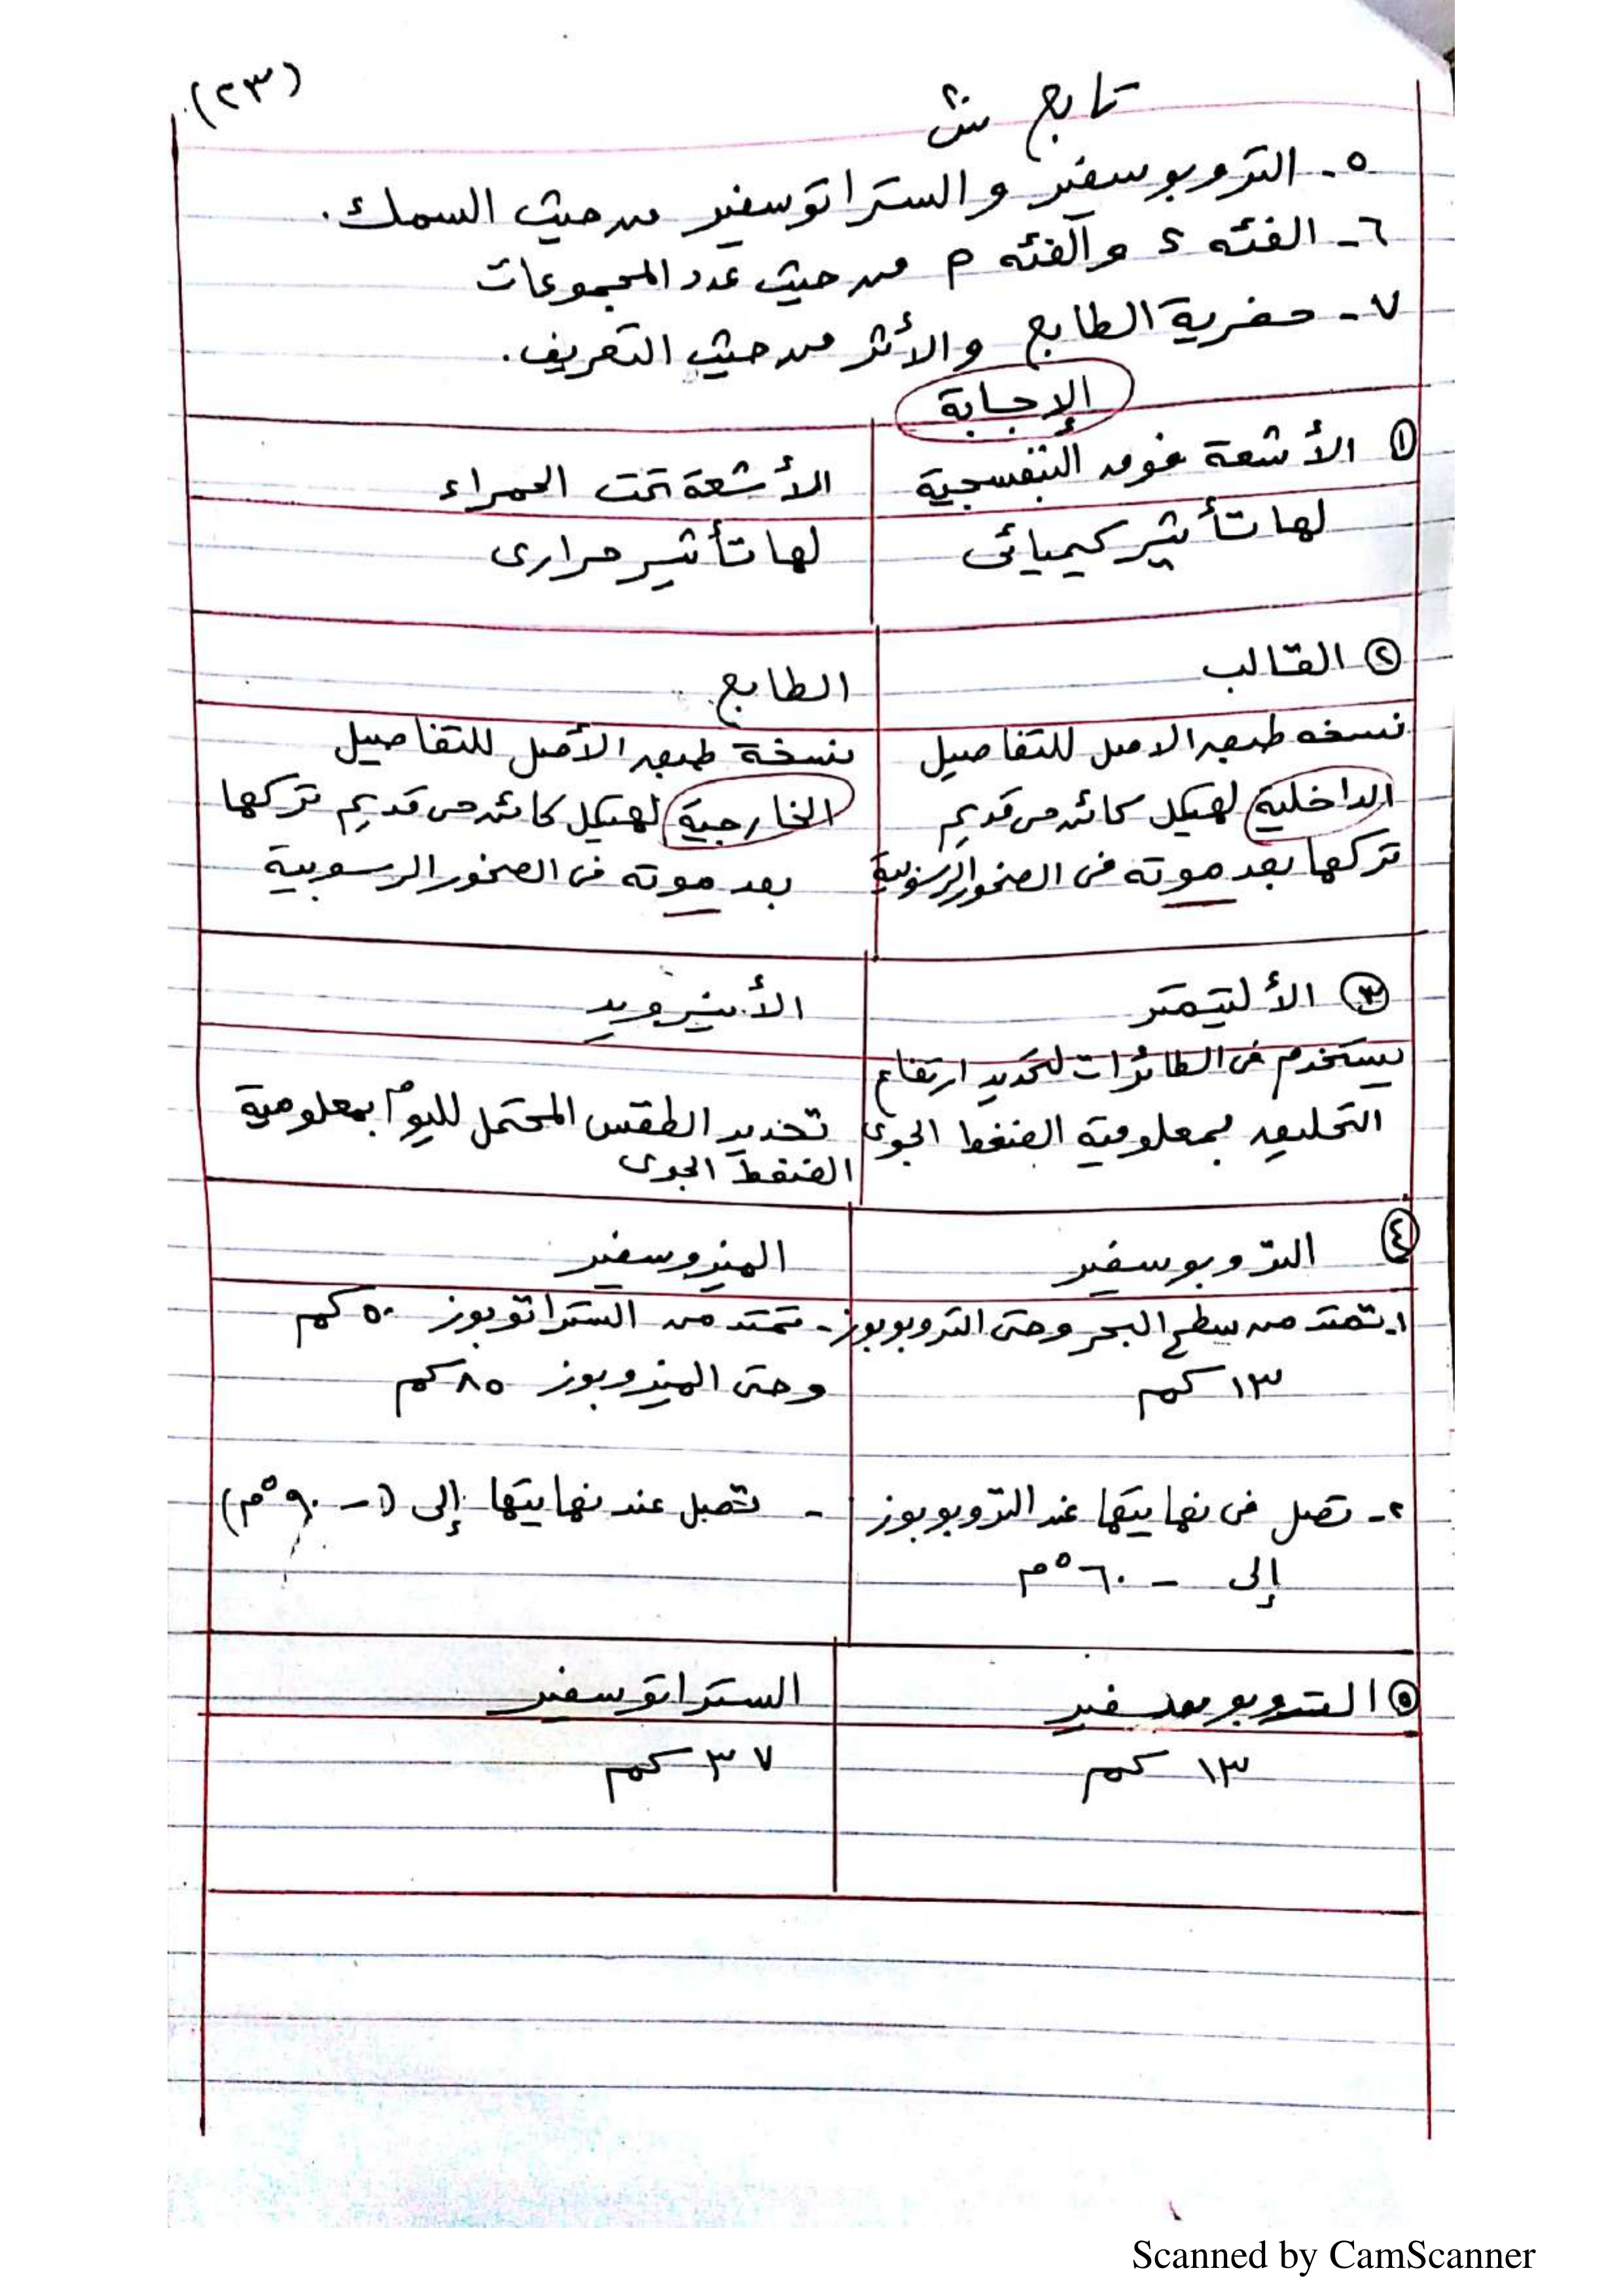 (٢٣)
تابع س٢
٥- التروبوسفير والستراتوسفير من حيث السمك.
٦- الفئه s والفئه p من حيث عدد المجموعات
٧- حفرية الطابع والأثر من حيث التعريف.
الإجابة
① الأشعة فوق البنفسجية
الأشعة تحت الحمراء
لها تأثير كيميائى
لها تأثير حرارى
② القالب
الطابع
نسخه طبق الاصل للتفاصيل
الداخلية لهيكل كائن حى قديم
تركها بعد موته فى الصخور الرسوبية
نسخة طبق الأصل للتفاصيل
الخارجية لهيكل كائن حى قديم تركها
بعد موته فى الصخور الرسوبية
③ الألتيمتر
الأنيرويد
يستخدم فى الطائرات لتحديد ارتفاع
التحليق بمعلومية الضغط الجوى
تحديد الطقس المحتمل لليوم بمعلومية
الضغط الجوى
④ التروبوسفير
الميزوسفير
١- تمتد من سطح البحر وحتى التروبوبوز
١٣ كم
- تمتد من الستراتوبوز ٥٠ كم
وحتى الميزوبوز ٨٥ كم
٢- تصل فى نهايتها عند التروبوبوز
إلى - ٦٠°م
- تصل عند نهايتها إلى (- ٩٠°م)
⑤ التروبوسفير
الستراتوسفير
١٣ كم
٣٧ كم
Scanned by CamScanner